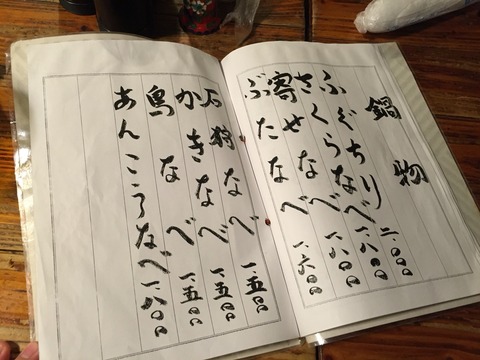 鍋物
ふぐちり 二.〇〇〇
さくらなべ 一.八〇〇
寄せなべ 一.八〇〇
ぶたなべ 一.六〇〇
石狩なべ 一.五〇〇
かきなべ 一.五〇〇
鳥なべ 一.五〇〇
あんこうなべ 一.八〇〇